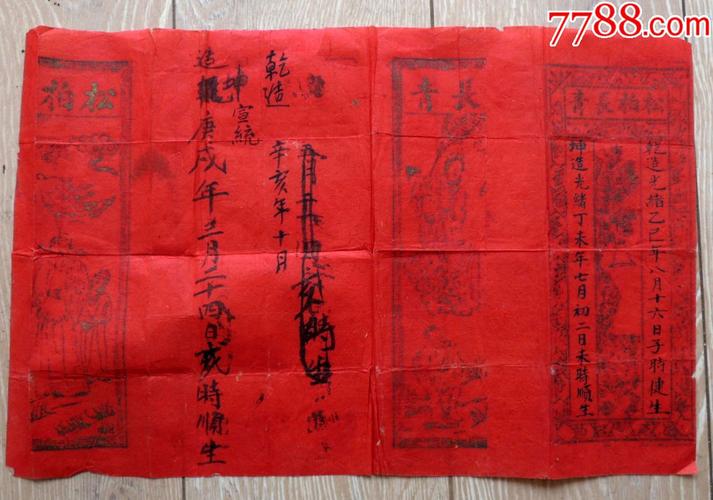 7788.com
松柏長青
乾造光緒乙巳年八月十六日子時健生
坤造光緒丁未年七月初二日未時順生
長青
時生
乾造
宣統
辛亥年十月
坤
造
庚戌年三月二十四日亥時順生
松柏